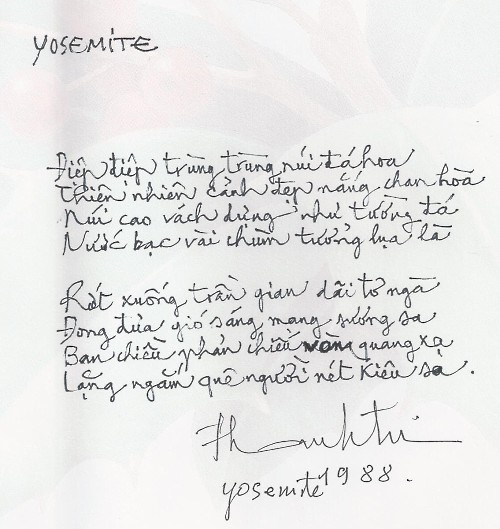 YOSEMITE
Điệp điệp trùng trùng núi đá hoa
Thiên nhiên cảnh đẹp nắng chan hòa
Núi cao vách dựng như tường đá
Nước bạc vài chùm tưởng lụa là
Rớt xuống trần gian dãi tơ ngà
Đong đưa gió sáng mang sương sa
Ban chiều phản chiếu vầng quang xạ
Lặng ngắm quê người nét kiêu sa.
Thanh Trí
Yosemite 1988.